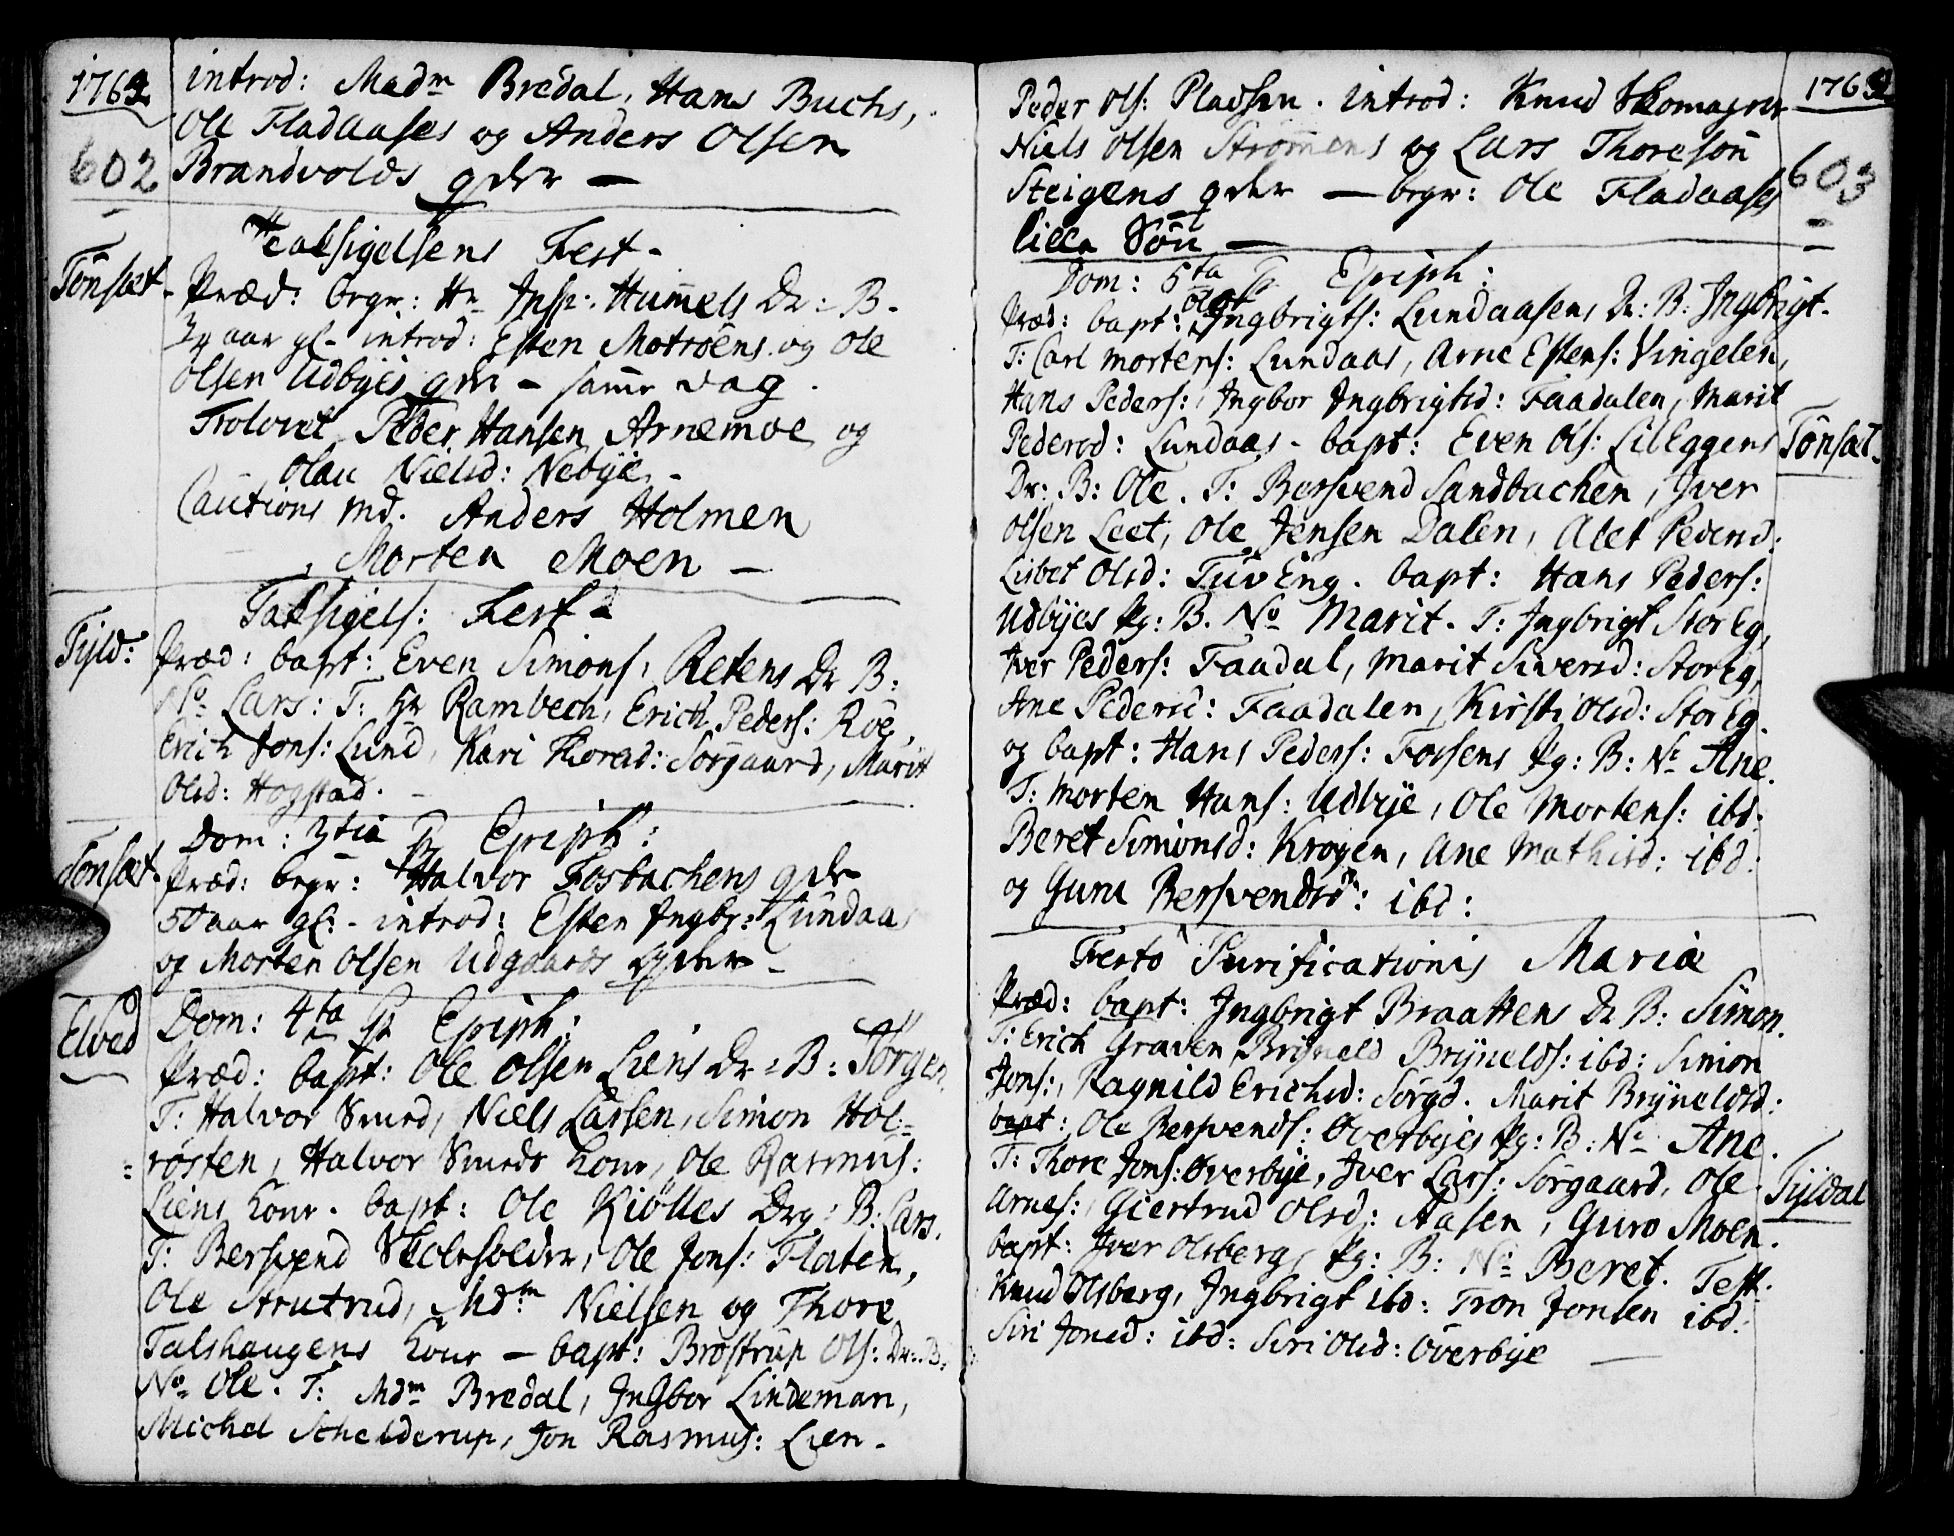 1762
602
introd: Madm Bredal, Hans Buchs,
Ole Fladaases og Anders Olsen
Brandvolds qder —
Taksigelsens Fest -
Tönset.
Præd: begr: Hr Insp: Hummels Dr: B-
aar gl- introd: Esten Motröens og Ole
Olsen Udbyes qder - samme dag.
Trolovet Peder Hansen Arnemoe og
Olau Nielsd: Nebye -
Cautions md. Anders Holmen
Morten Moen —
Tyld:
Taksigels: Fest -
Præd: bapt: Even Simons: Retens Dr B:
No Lars: T: Hr Rambech, Erich Peders: Röe,
Erich Jons: Lund, Kari Thorsd: Sörgaard, Marit
Olsd: Hogstad. -
Tönset.
Dom: 3tia P. Epiph:
Præd: begr: Halvor Fosbachens qde
50 aar gl: - introd: Esten Ingbr: Lundaas
og Morten Olsen Udgaards qder -
Elved
Dom: 4ta P. Epiph:
Præd: bapt: Ole Olsen Liens Dr: B: Jörgen.
T: Halvor Smed, Niels Larsen, Simon Hol-
rösten, Halvor Smeds Kone, Ole Rasmus:
Liens Kone. bapt: Ole Kiölles Drg: B: Lars.
T: Berspend Skoleholder, Ole Jons: Flaten,
Ole Strutrud, Mdm Nielsen og Thore
Talshaugens Kone — bapt: Broström Ols: Dr: B.
No Ole. T: Mdm Bredal, Ingbor Lindeman,
Michel Schelderup, Jon Rasmus: Lien.
1762
603
Peder Ols: Pladsen. introd: Knud Skomager
Niels Olsen Strömmens og Lars Thoresön
Steigens qder — begr: Ole Fladaases
lille Sön —
Dom: 5ta P. Epiph:
Præd: bapt: Ingbrigts: Lundaasens Dr: B: Ingbrigt.
T: Carl Mortens: Lundaas, Arne Estens: Vingelen,
Hans Peders: Ingbor Ingbrigtsd: Faadalen, Marit
Pedersd: Lundaas - bapt: Even Ols: LilEggens
Tönset.
Dr: B: Ole. T: Berspend Sandbachen, Iver
Olsen Leet, Ole Jensen Dalen, Alet Pedersd:
Lisbet Olsd: TuvEng. bapt: Hans Peders:
Udbyes Pg: B. No Marit. T: Ingbrigt StorEg,
Iver Peders: Faadal, Marit Siversd: StorEg,
Ane Pedersd: Faadalen, Kirsti Olsd: StorEg.
og bapt: Hans Peders: Fossens Pg: B: No Ane.
T: Morten Hans: Udbye, Ole Mortens: ibd:
Beret Simonsd: Krogen, Ane Mathisd: ibd:
og Guru Berspendsd: ibd:
Festo Purificationis Mariæ
Præd: bapt: Ingbrigt Braattens Dr B: Simon.
T: Erich Graven, Bryneld Brynelds: ibd: Simon
Jons:, Ragnild Erichsd: Sörgd. Marit Bryneldsd:
bapt: Ole Berspends: Överbyes Pg: B: No Ane.
T: Thore Jons: Överbye, Iver Lars: Sörgaard, Ole
Tyldal
Arnes:, Giertrud Olsd: Aasen, Guro Moen.
bapt: Iver Olsberg, Pg: B: No Beret. Test:
Knud Olsberg, Ingbrigt ibd: Tron Jonsen ibd:
Siri Jonsd: ibd: Siri Olsd: Överbye —